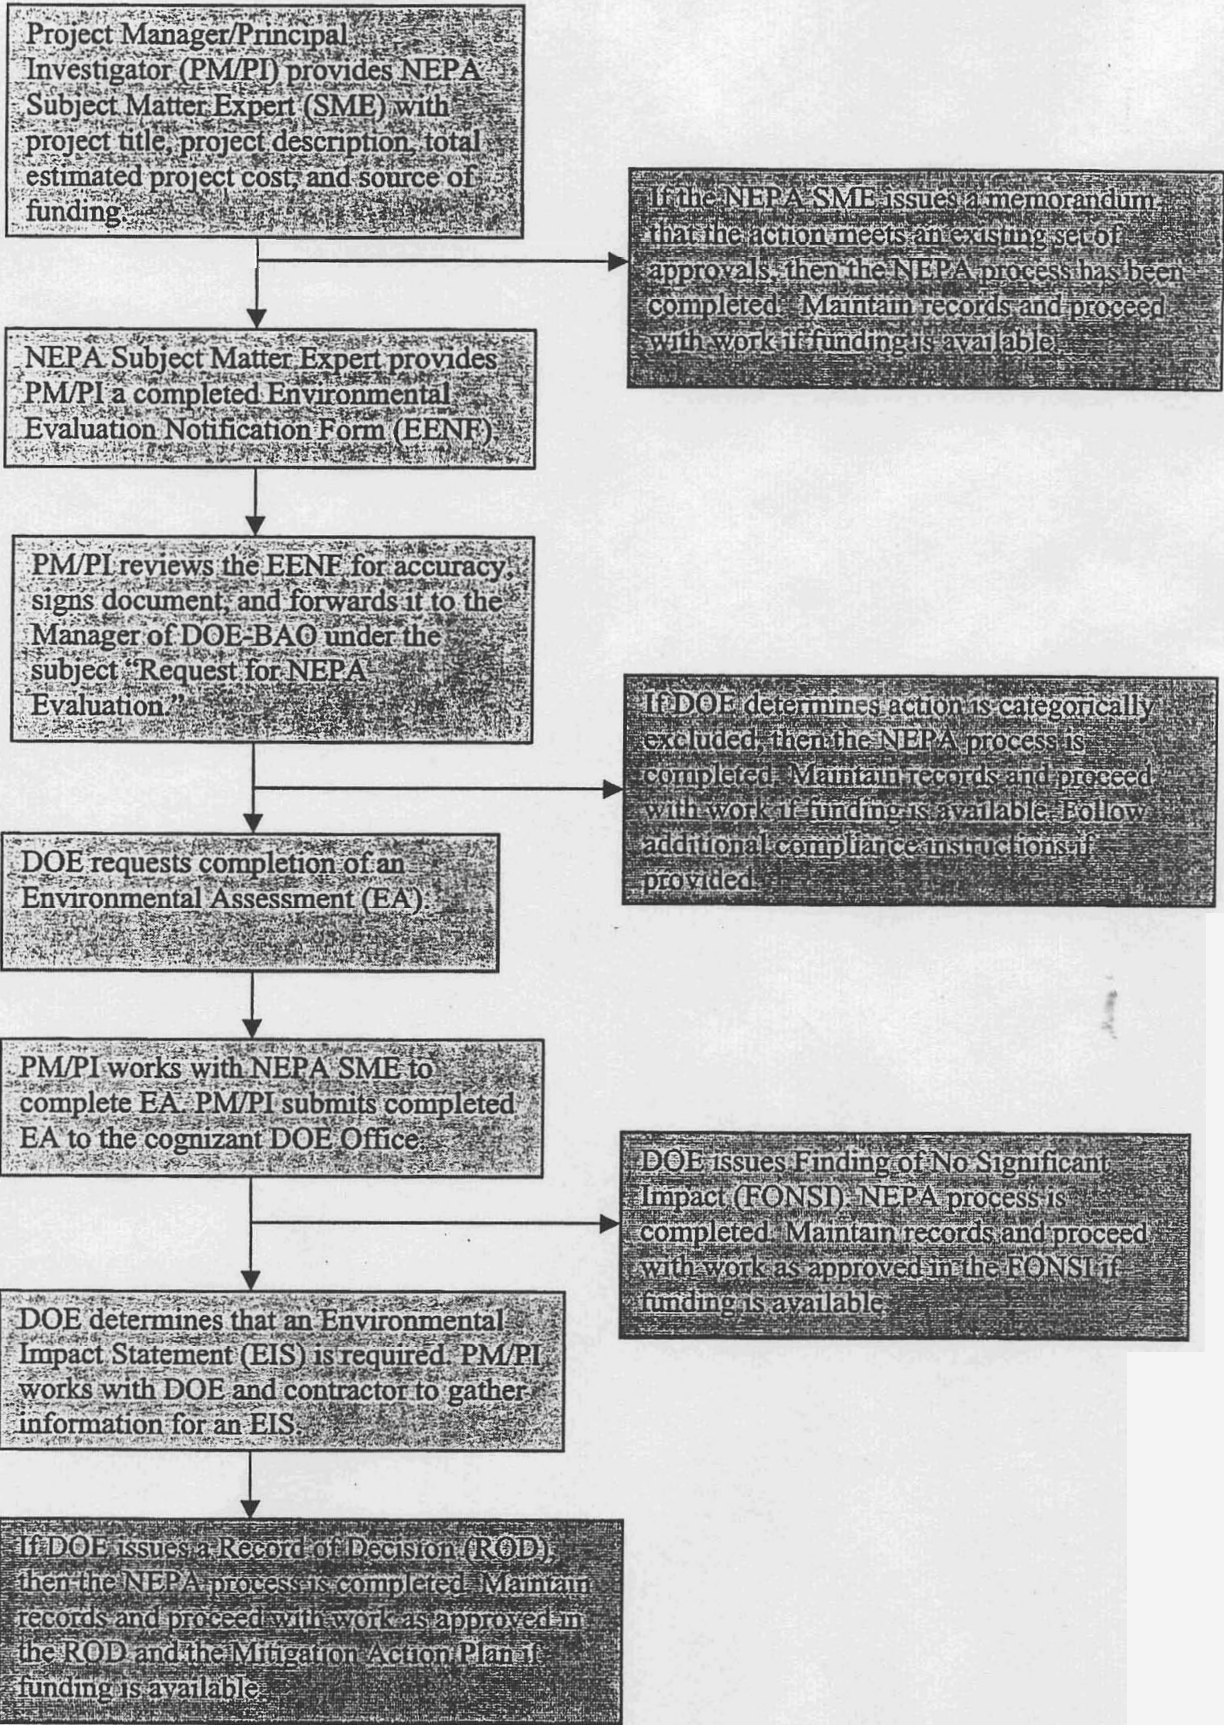 Project Manager/Principal
Investigator (PM/PI) provides NEPA
Subject Matter Expert (SME) with
project title, project description, total
estimated project cost, and source of
funding.
If the NEPA SME issues a memorandum
that the action meets an existing set of
approvals, then the NEPA process has been
completed. Maintain records and proceed
with work if funding is available.
NEPA Subject Matter Expert provides
PM/PI a completed Environmental
Evaluation Notification Form (EENF).
PM/PI reviews the EENF for accuracy,
signs document, and forwards it to the
Manager of DOE-BAO under the
subject “Request for NEPA
Evaluation.”
If DOE determines action is categorically
excluded, then the NEPA process is
completed. Maintain records and proceed
with work if funding is available. Follow
additional compliance instructions if
provided.
DOE requests completion of an
Environmental Assessment (EA).
PM/PI works with NEPA SME to
complete EA. PM/PI submits completed
EA to the cognizant DOE Office.
DOE issues Finding of No Significant
Impact (FONSI). NEPA process is
completed. Maintain records and proceed
with work as approved in the FONSI if
funding is available.
DOE determines that an Environmental
Impact Statement (EIS) is required. PM/PI
works with DOE and contractor to gather
information for an EIS.
If DOE issues a Record of Decision (ROD),
then the NEPA process is completed. Maintain
records and proceed with work as approved in
the ROD and the Mitigation Action Plan if
funding is available.